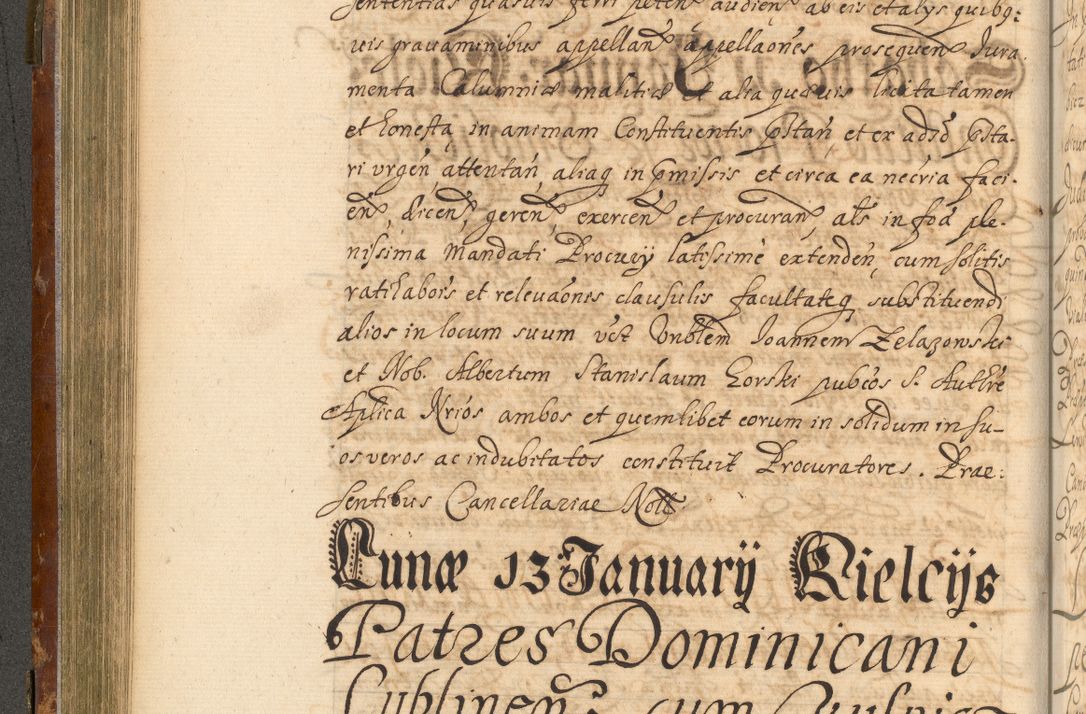 sententias quasvis ferri peten audien ab eis et alys quibq:
vis gravaminibus appellan appellaones prosequen Jura
menta Calumniæ malitiæ et alia quævis licita tamen
et honesta in animam Constituentis pstan et ex adso psta-
ri urgen attentan aliaq in pmissis et circa ea necria faci-
en, dicen, geren, exercen et procuran, als in foa ple-
nissima Mandati Procurÿ latissime extenden cum solitis
ratihabois et relevaones clausulis facultateq substituendi
alios in locum suum
Joannem Zelazowski
et Nob. Albertum Stanislaum Gorski pubcos S. Authre
Aplica Nrios ambos et quemlibet eorum in solidum in su-
os veros ac indubitatos constituit Procuratores. Prae:
sentibus Cancellariae Nott:
Lunæ 13 Januarÿ Kielcÿs
Patres Dominicani
Lublinen: cum